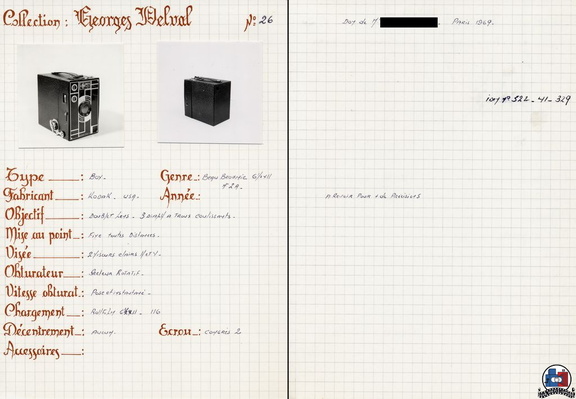 Collection : Georges Delval N° 26
Type : Box.
Genre : Beau Brownie
Fabricant : Kodak. USA.
Année :
Objectif : Doublet Lens. 3 diaph/
Mise au point : Fixe toutes Distances.
Visée : 2 Viseurs clairs H et V.
Obturateur : Secteur Rotatif.
Vitesse obturat. : Pose et instantané.
Chargement : Roll 116
Décentrement : aucun.
Ecrou : congrès 2
Accessoires :
Don de M Paris 1969.
inv n° 522 - 41 - 329
A Revoir Pour + de Précisions